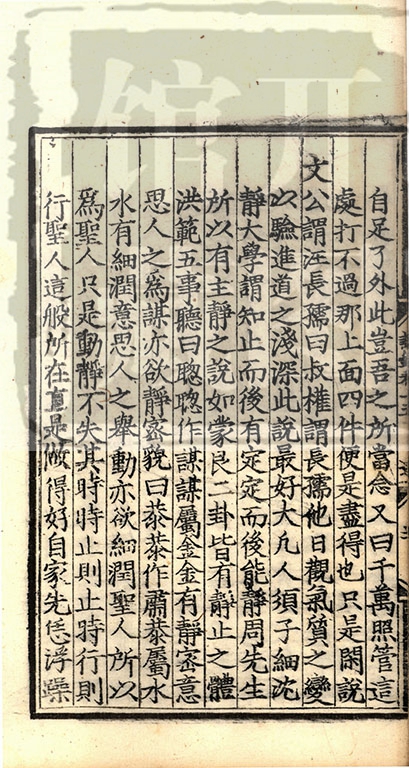 自足了外此豈吾之所當念又曰千萬照管這
處打不過那上面四件便是盡得也只是閑說
文公謂汪長孺曰叔權謂長孺他日觀氣質之變
以驗進道之淺深此說最好大凡人須子細沈
靜大學謂知止而後有定定而後能靜周先生
所以有主靜之說如蒙艮二卦皆有靜止之體
洪範五事聽曰聰聰作謀謀屬金金有靜密意
思人之為謀亦欲靜密貌曰恭恭作肅恭屬水
水有細潤意思人之舉動亦欲細潤聖人所以
為聖人只是動靜不失其時時止則止時行則
行聖人這般所在直是做得好自家先恁浮躁